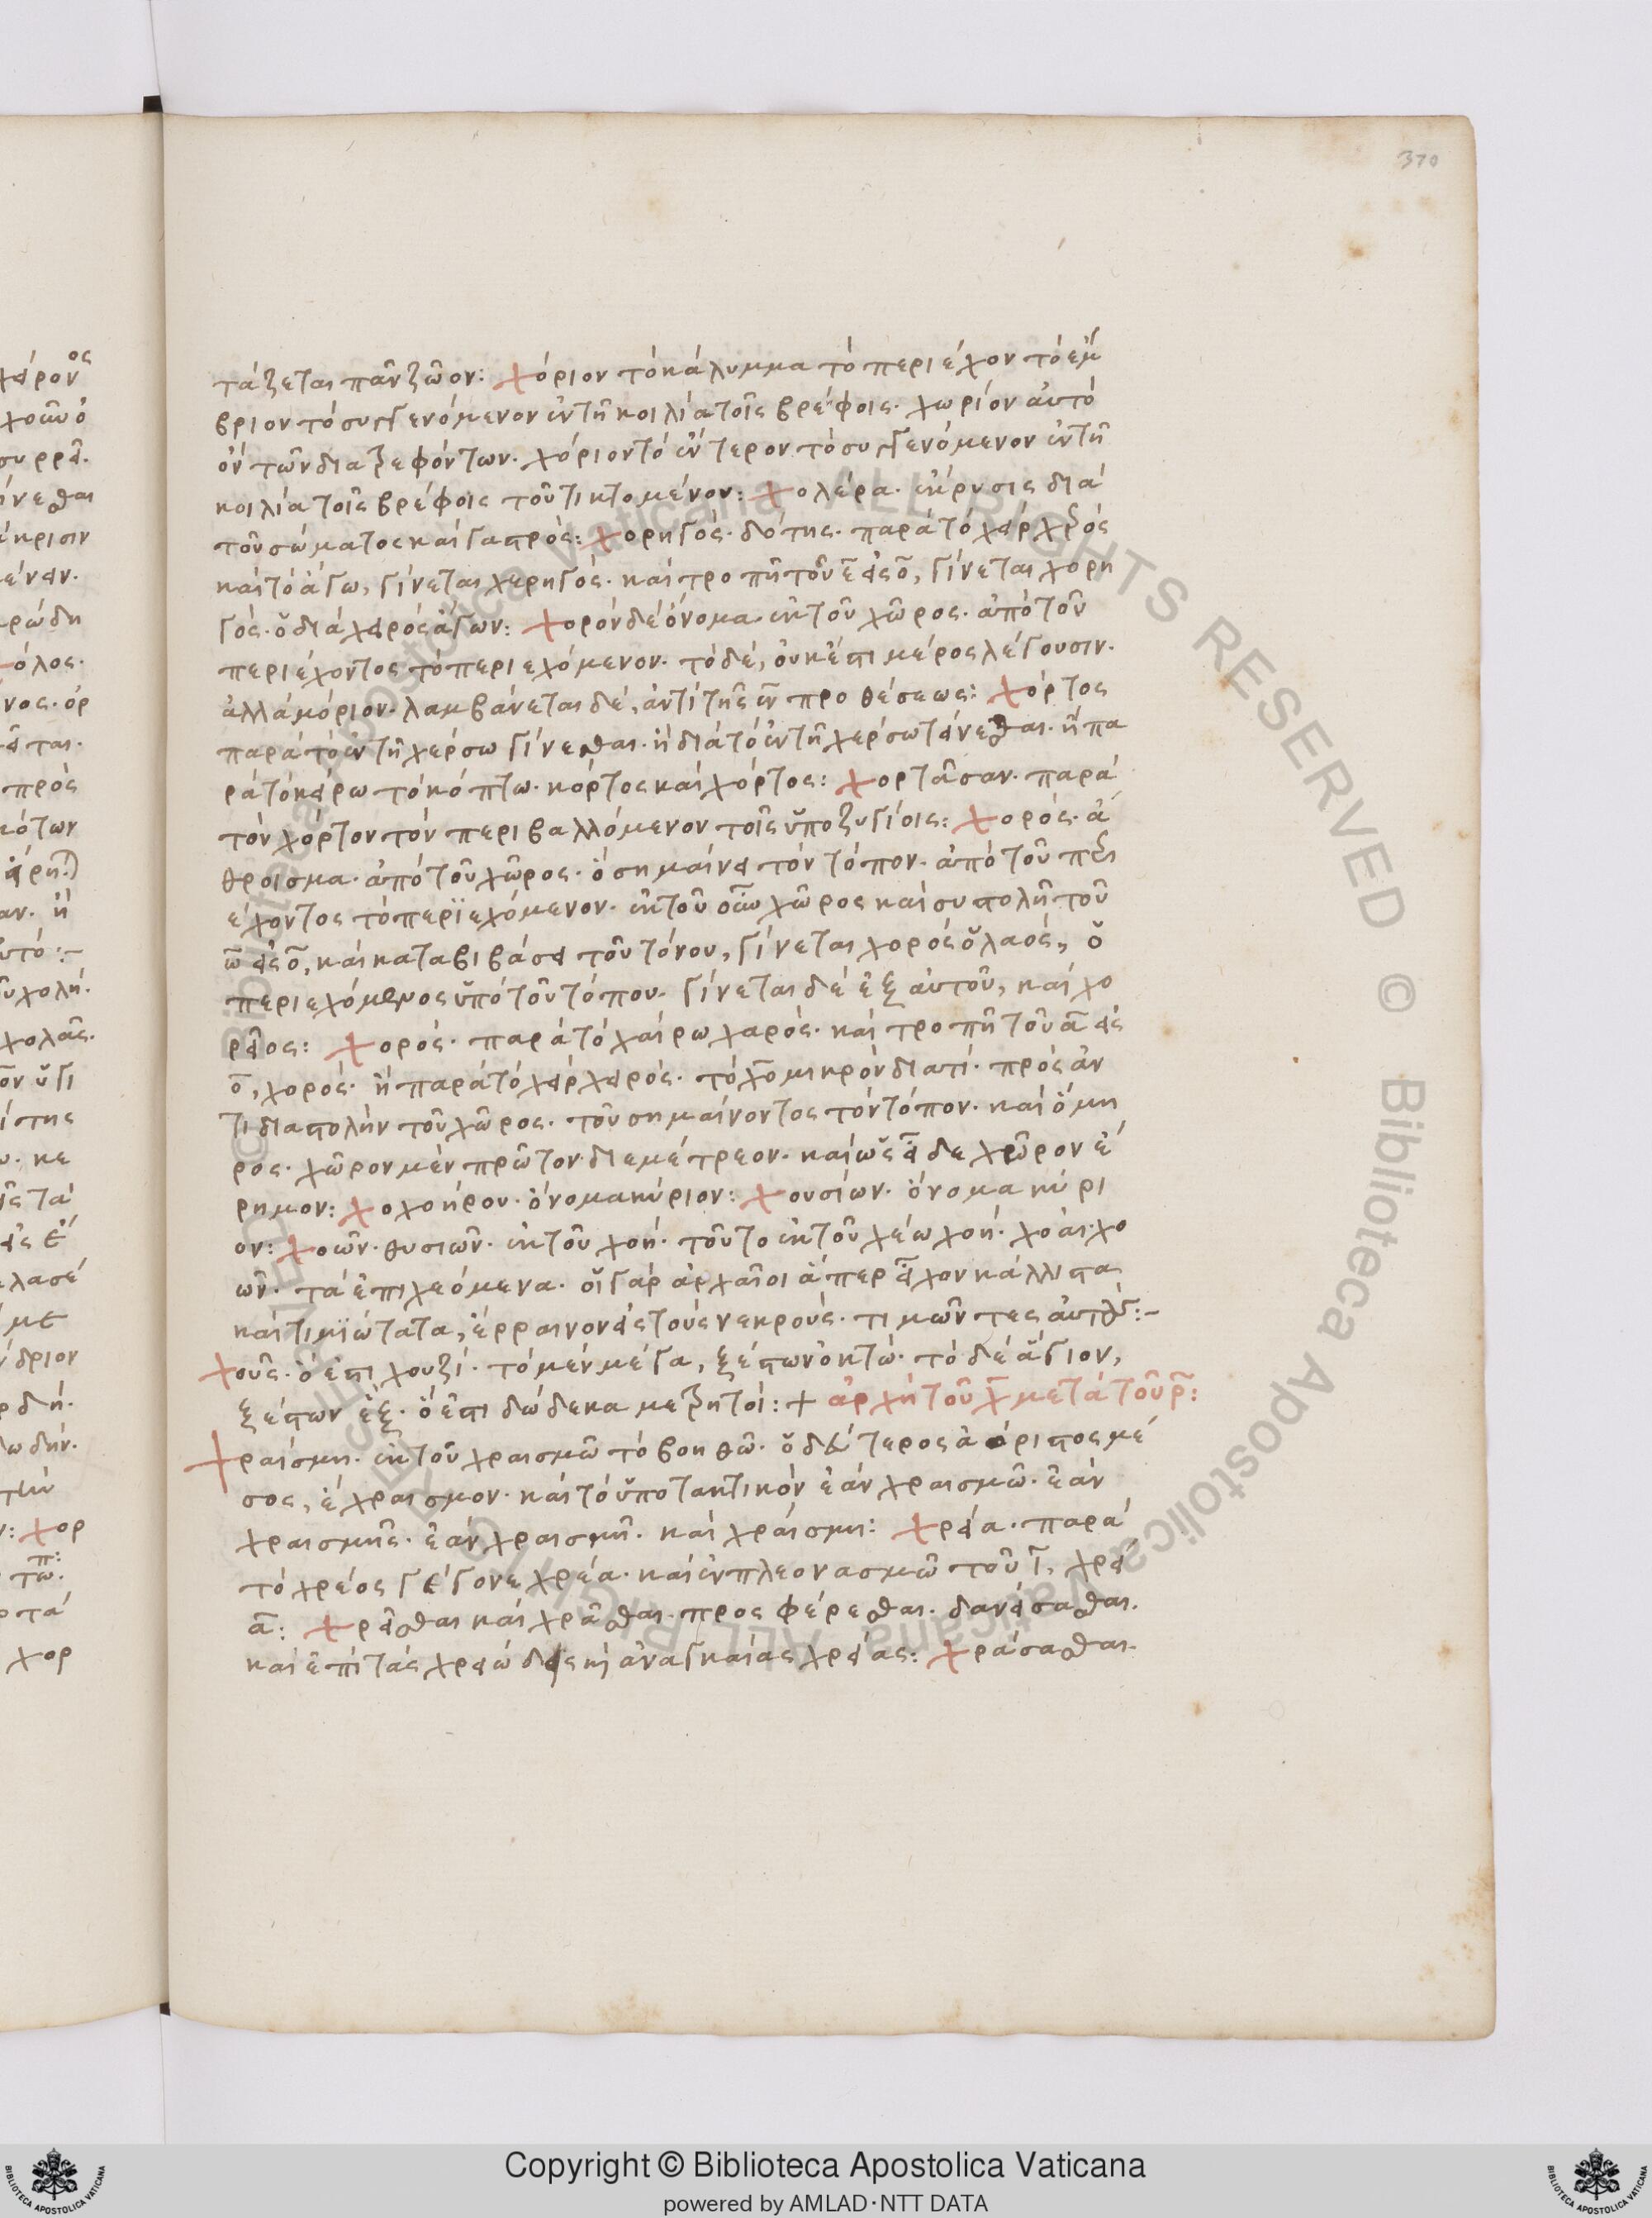 370
τάζεται πᾶν ζῶον: Χόριον τὸ κάλυμμα τὸ περιέχον τὸ ἐμ
βριον τὸ συγγενόμενον ἐν τῆ κοιλία τοῖς βρέφοις. χωρίον αὐτὸ
ὂν τῶν διατρεφόντων. χόριον τὸ ἔντερον τὸ συγγενόμενον ἐν τῆ
κοιλία τοῖς βρέφοις τοῦ τικτομένου: Χολέρα. ἔκρυσις διὰ
τοῦ σώματος καὶ γαστρός: Χορηγός. δότης. παρὰ τὸ χεὶρ χειρὸς
καὶ τὸ ἄγω, γίνεται χερηγός. καὶ τροπῆ τοῦ ε̄ εἰς ο̄, γίνεται χορη
γός. ὁ διὰ χειρὸς ἄγων: Χορὸν δὲ ὄνομα ἐκ τοῦ χῶρος. ἀπὸ τοῦ
περιέχοντος τὸ περιεχόμενον. τὸ δὲ, οὐκ ἔστι μέρος λέγουσιν.
ἀλλὰ μόριον. λαμβάνεται δὲ, ἀντὶ τῆς ἐν προθέσεως: Χόρτος
παρὰ τὸ ἐν τῆ χέρσω γίνεσθαι. ἢ διὰ τὸ ἐν τῆ χέρσω τείνεσθαι. ἢ πα
ρὰ τὸ κείρω τὸ κόπτω. κόρτος καὶ χόρτος: Χορτᾶσαι. παρὰ
τὸν χόρτον τὸν περιβαλλόμενον τοῖς ὑποζυγίοις: Χορός. ἄ
θροισμα. ἀπὸ τοῦ χῶρος. ὃ σημαίνει τὸν τόπον. ἀπὸ τοῦ περι
έχοντος τὸ περϊεχόμενον. ἐκ τοῦ οὖν χῶρος καὶ συστολῆ τοῦ
ω̄ εἰς ο̄, καὶ καταβιβάσει τοῦ τόνου, γίνεται χορὸς ὁ λαὸς, ὁ
περιεχόμενος ὑπὸ τοῦ τόπου. γίνεται δὲ ἐξ αὐτοῦ, καὶ χο
ρεῖος: Χορός. παρὰ τὸ χαίρω χαρός. καὶ τροπῆ τοῦ ᾱ εἰς
ο̄, χορός. ἢ παρὰ τὸ χεὶρ χειρός. τὸ χο μικρὸν διατί. πρὸς ἀν
τιδιαστολὴν τοῦ χῶρος. τοῦ σημαίνοντος τὸν τόπον. καὶ ὅμη
ρος. χῶρον μὲν πρῶτον διεμέτρεον. καὶ ὡς εἶδε χῶρον ἔ
ρημον: Χοχοήρου. ὄνομα κύριον: Χουσίων. ὄνομα κύρι
ον: Χοῶν. θυσιῶν. ἐκ τοῦ χοή. τοῦτο ἐκ τοῦ χέω χοή. χοαὶ. χο
ῶν. τὰ ἐπιχεόμενα. οἱ γὰρ ἀρχαῖοι ἅπερ εἶχον κάλλιστα
καὶ τιμϊώτατα, ἔρραινον εἰς τοὺς νεκρούς. τιμῶντες αὐτούς:-
Χοῦς. ὅ ἐστι χουζί. τὸ μὲν μέγα, ξέστων ὀκτώ. τὸ δὲ ἅγιον,
ξέστων ἕξ. ὅ ἐστι δώδεκα μετρητοί: + ἀρχὴ τοῦ χ̄ μετὰ τοῦ ρ̄:
Χραίσμη. ἐκ τοῦ χραισμῶ τὸ βοηθῶ. ὁ δεύτερος ἀόριστος μέ
σος, ἔχραισμον. καὶ τὸ ὑποτακτικὸν ἐὰν χραισμῶ. ἐὰν
χραισμῆς. ἐὰν χραισμῆ. καὶ χραίσμη: Χρεία. παρὰ
τὸ χρέος γέγονε χρέα. καὶ ἐν πλεονασμῶ τοῦ ῑ, χρεί
α: Χρεῖσθαι καὶ χρᾶσθαι. προσφέρεσθαι. δανείσασθαι.
καὶ ἐπὶ τὰς χρειώδεις κὶ ἀναγκαίας χρείας: Χράσασθαι.
Copyright © Biblioteca Apostolica Vaticana
powered by AMLAD・NTT DATA